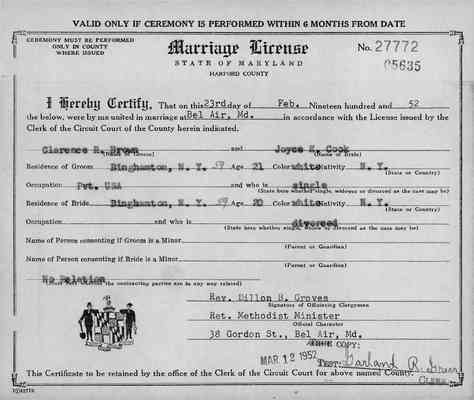 VALID ONLY IF CEREMONY IS PERFORMED WITHIN 6 MONTHS FROM DATE
CEREMONY MUST BE PERFORMED
ONLY IN COUNTY
WHERE ISSUED
Marriage License
STATE OF MARYLAND
HARFORD COUNTY
No. 27772
05635
I Hereby Certify, That on this 23rd day of Feb. Nineteen hundred and 52
the below, were by me united in marriage at Bel Air, Md. in accordance with the License issued by the
Clerk of the Circuit Court of the County herein indicated.
Clarence R. Brown and Joyce E. Cook
(Name of Groom) (Name of Bride)
Residence of Groom Binghamton, N. Y. Age 21 Color white Nativity N. Y.
(State or Country)
Occupation Pvt. USA and who is single
(State here whether single, widower or divorced as the case may be)
Residence of Bride Binghamton, N. Y. Age 20 Color white Nativity N. Y.
(State or Country)
Occupation and who is divorced
(State here whether single, widow or divorced as the case may be)
Name of Person consenting if Groom is a Minor
(Parent or Guardian)
Name of Person consenting if Bride is a Minor
(Parent or Guardian)
No Relation
the contracting parties are in any way related)
Rev. Dillon B. Groves
Signature of Officiating Clergyman
Ret. Methodist Minister
Official Character
38 Gordon St., Bel Air, Md.
COPY:
MAR 12 1952 TEST: Garland R.
CLERK
This Certificate to be retained by the office of the Clerk of the Circuit Court for above named County.